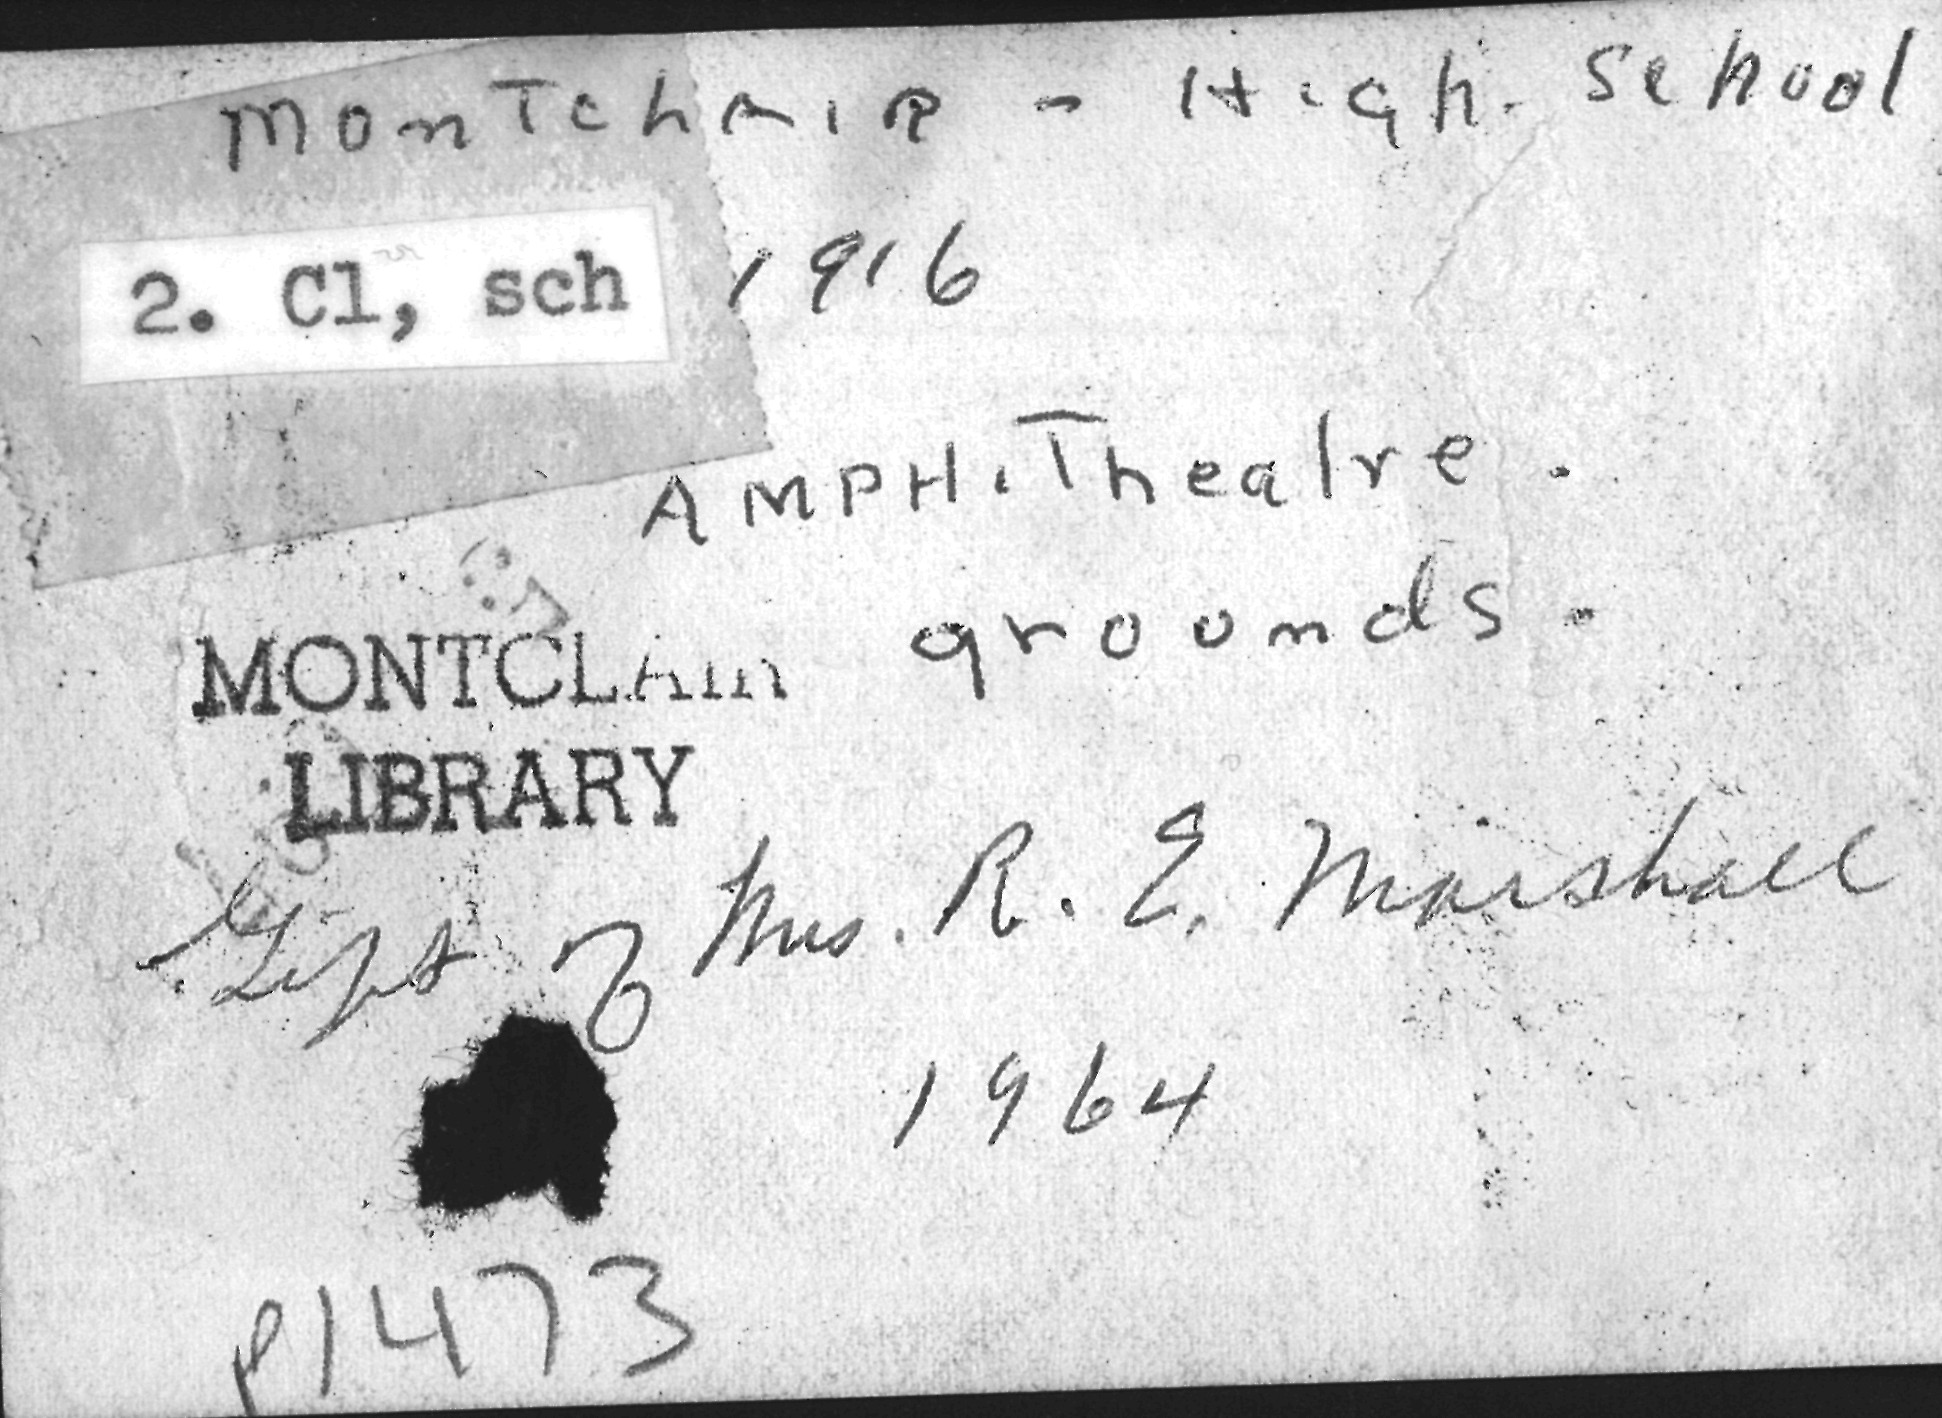 MonTchAIR - High. School
2. Cl, sch
1916
AMPHiTheatre.
grounds.
MONTCLAIR
LIBRARY
Gift of Mrs. R. E. Marshall
1964
p1473